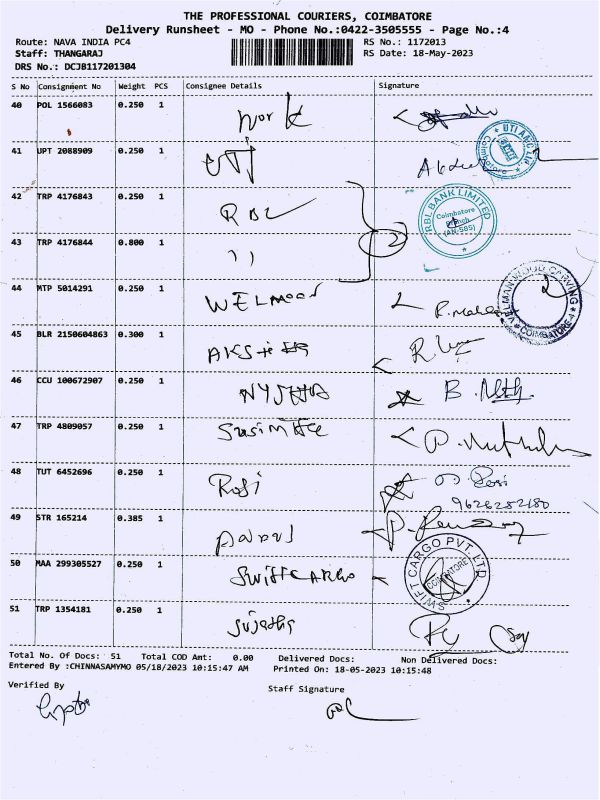 THE PROFESSIONAL COURIERS, COIMBATORE
Delivery Runsheet - MO - Phone No.:0422-3505555 - Page No.:4
Route: NAVA INDIA PC4
RS No.: 1172013
Staff: THANGARAJ
RS Date: 18-May-2023
DRS No.: DCJB117201304
S No Consignment No Weight PCS Consignee Details Signature
40 POL 1566083 0.250 1
41 UPT 2088909 0.250 1 UTI
42 TRP 4176843 0.250 1 RBL
RBL BANK LIMITED
Coimbatore
Branch
43 TRP 4176844 0.800 1 11
2
44 MTP 5014291 0.250 1 WELMOON
VELMAN WOOD CARVING
COIMBATORE-4
45 BLR 2150604863 0.300 1
46 CCU 100672907 0.250 1
47 TRP 4809057 0.250 1
48 TUT 6452696 0.250 1 Rosi
9626252180
49 STR 165214 0.385 1
50 MAA 299305527 0.250 1 SWIFTCARGO
SWIFT CARGO PVT. LTD.
COIMBATORE
51 TRP 1354181 0.250 1 Sujatha
Total No. Of Docs: 51 Total COD Amt: 0.00 Delivered Docs: Non Delivered Docs:
Entered By :CHINNASAMYMO 05/18/2023 10:15:47 AM Printed On: 18-05-2023 10:15:48
Verified By
Staff Signature